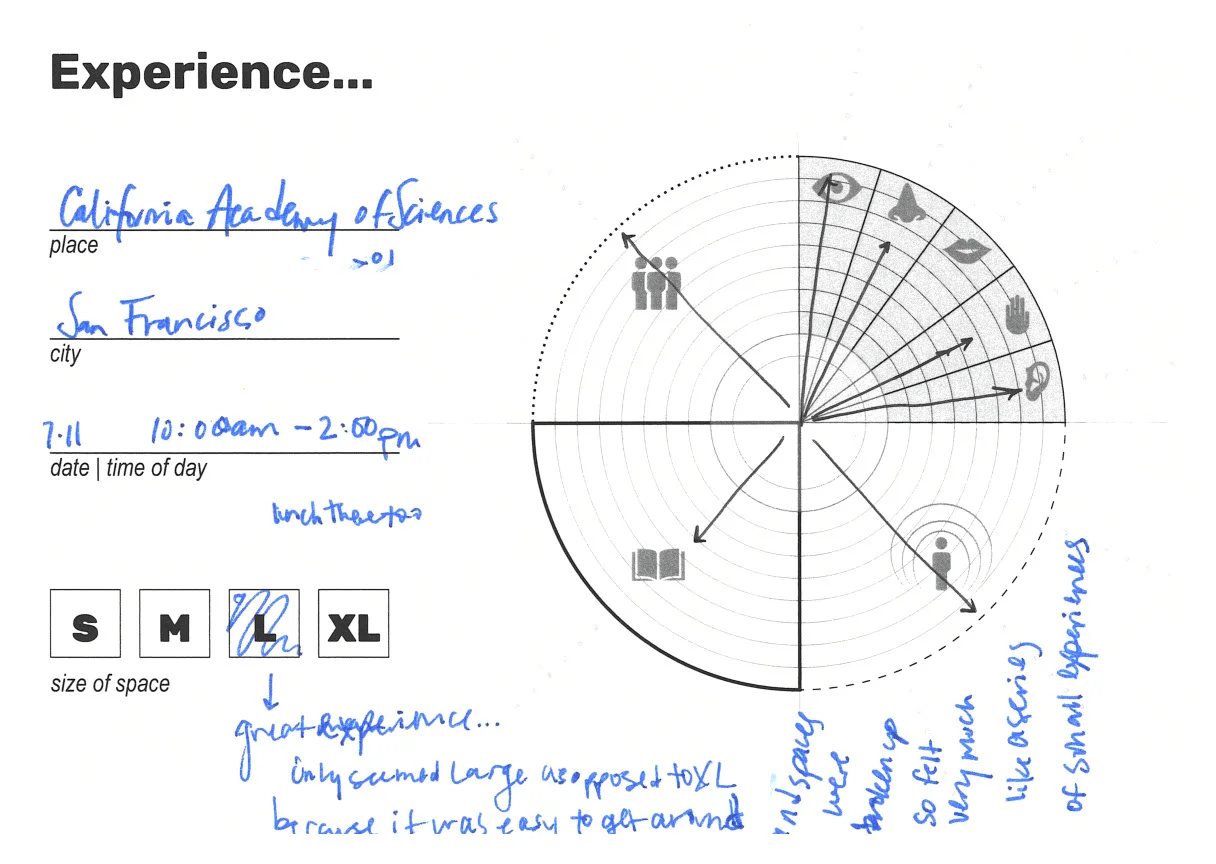 Experience...
California Academy of Sciences
place
San Francisco
city
7.11 10:00am - 2:00pm
date | time of day
lunch there too
S M L XL
size of space
great experience...
only seemed Large as opposed to XL
because it was easy to get around
and spaces
were
broken up
so felt
very much
like a series
of small experiences